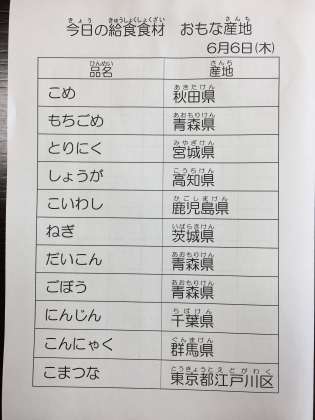 今日の給食食材 おもな産地
6月6日(木)
品名 産地
こめ 秋田県
もちごめ 青森県
とりにく 宮城県
しょうが 高知県
こいわし 鹿児島県
ねぎ 茨城県
だいこん 青森県
ごぼう 青森県
にんじん 千葉県
こんにゃく 群馬県
こまつな 東京都江戸川区